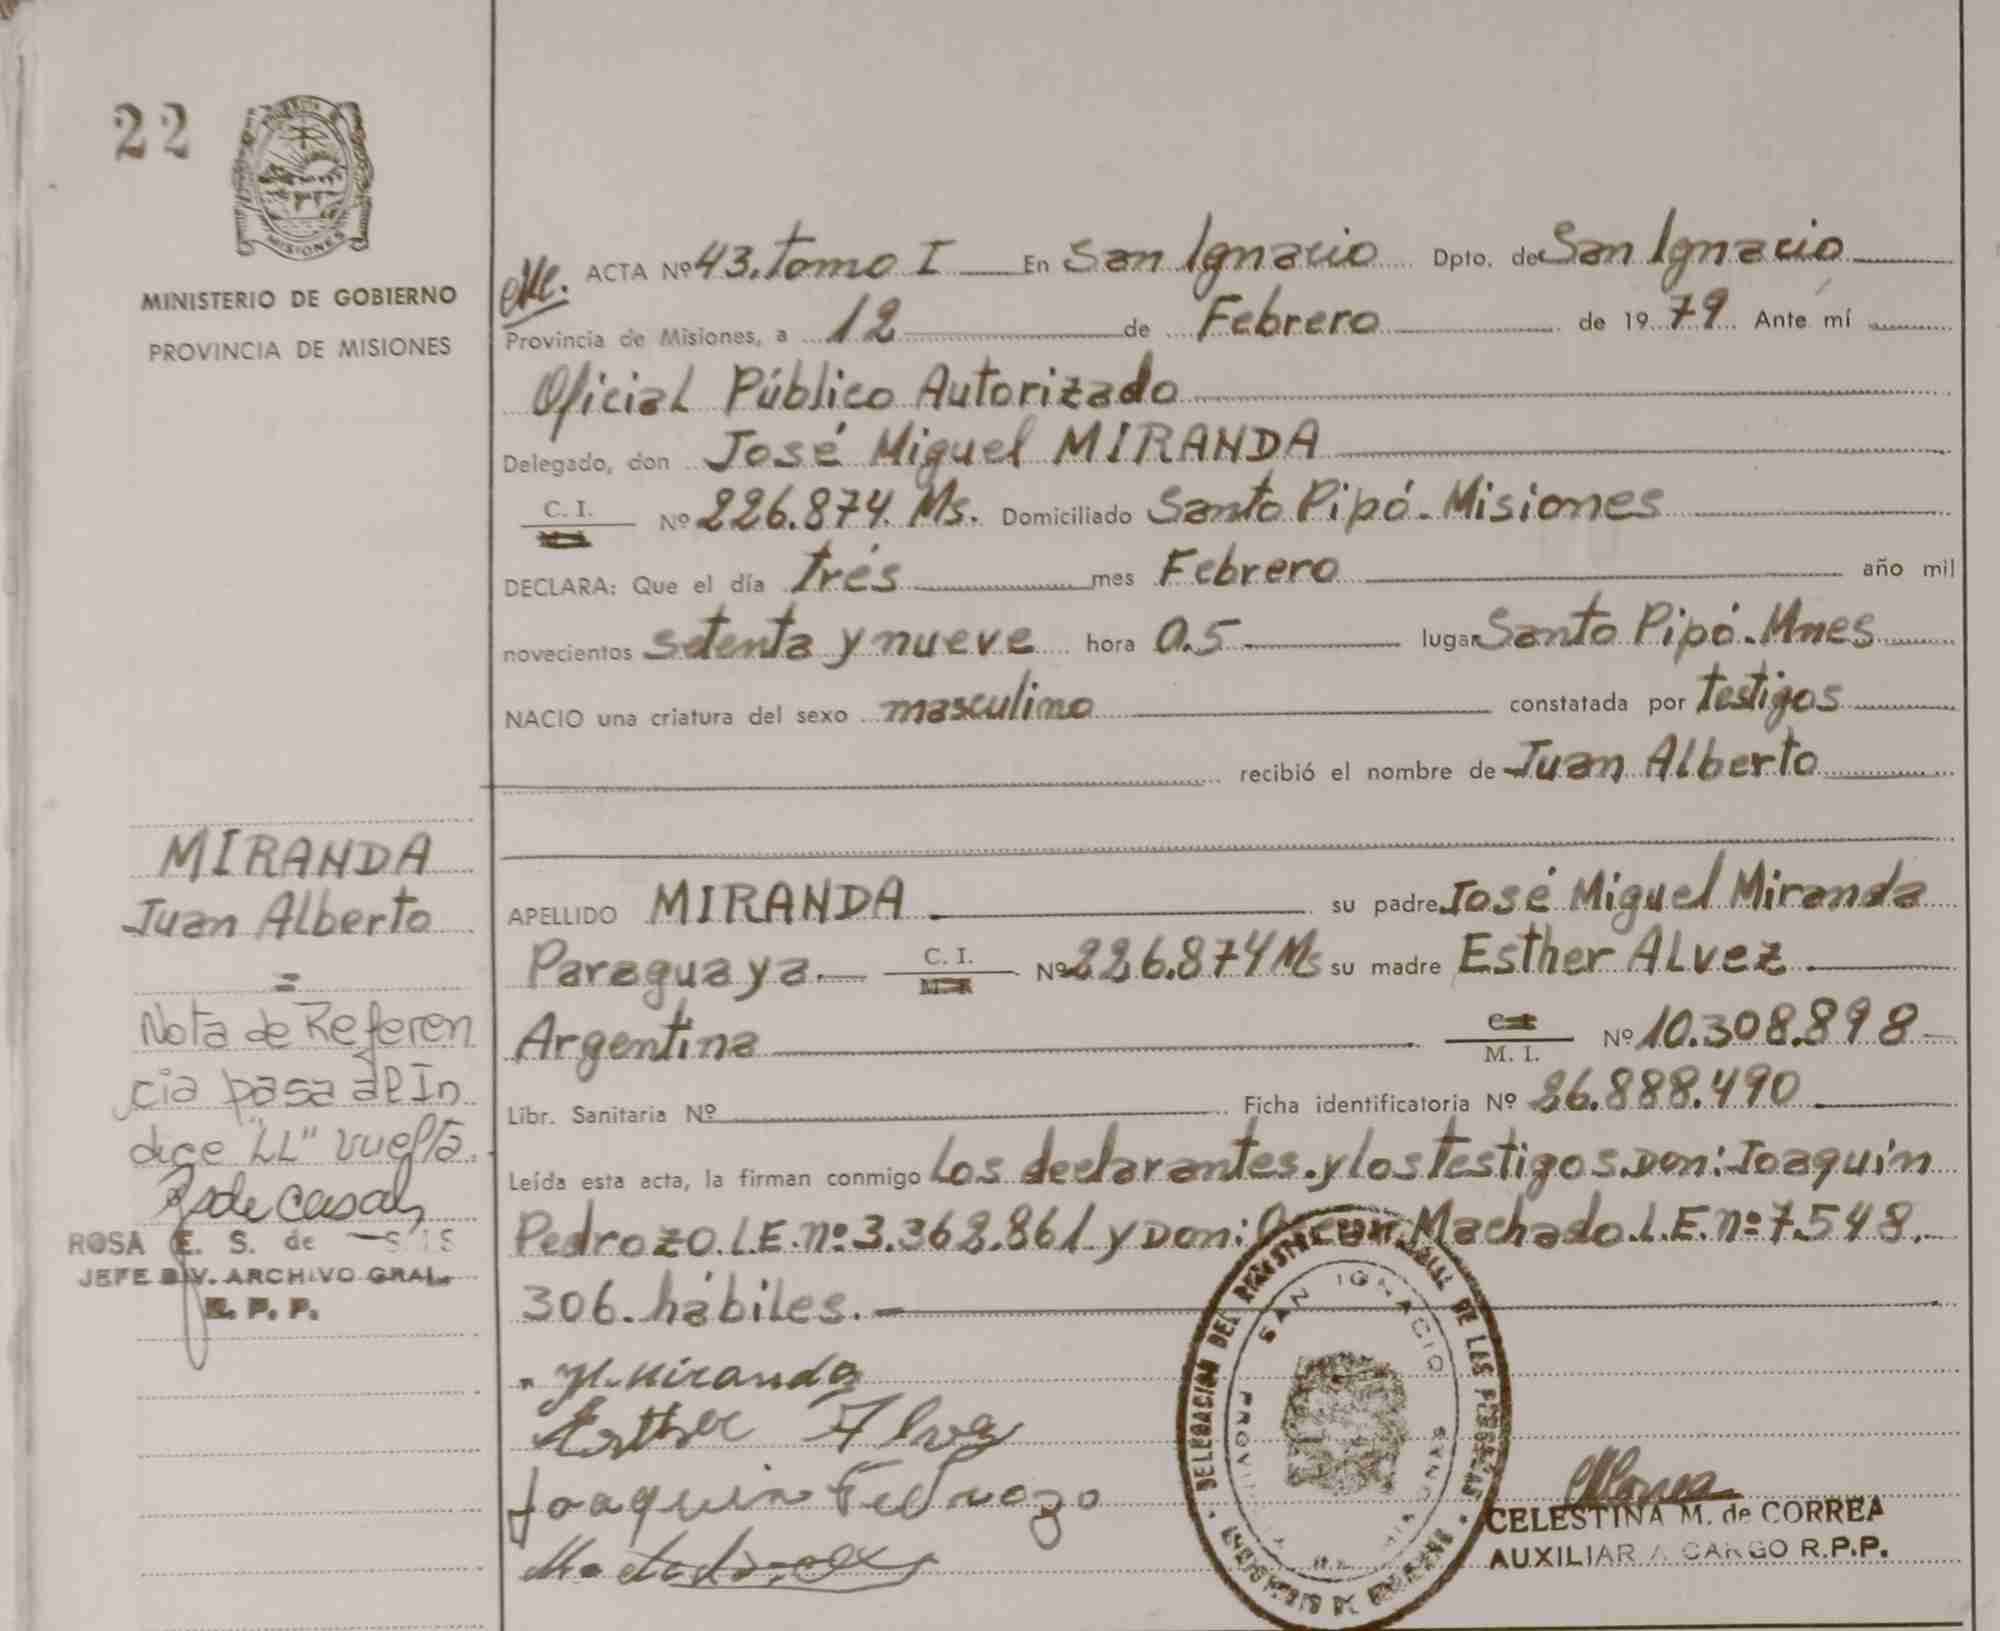 22
MISIONES
MINISTERIO DE GOBIERNO
PROVINCIA DE MISIONES
ACTA Nº 43. tomo I En San Ignacio Dpto. de San Ignacio
Provincia de Misiones, a 12 de Febrero de 1979 Ante mí
Oficial Público Autorizado
Delegado, don José Miguel MIRANDA
C. I. Nº 226.874. Ms. Domiciliado Santo Pipó. Misiones
DECLARA: Que el día trés mes Febrero año mil
novecientos setenta y nueve hora 0.5 lugar Santo Pipó. Mnes
NACIO una criatura del sexo masculino constatada por testigos
recibió el nombre de Juan Alberto
MIRANDA
Juan Alberto
=
Nota de Referen
cia pasa al In
dice "LL" vuelta.
ROSA E. S. de
JEFE DIV. ARCHIVO GRAL.
R. P. P.
APELLIDO MIRANDA su padre José Miguel Miranda
Paraguaya. C. I. Nº 226.874 Ms su madre Esther ALvez
Argentina M. I. Nº 10.308.898
Libr. Sanitaria Nº Ficha identificatoria Nº 26.888.490
Leída esta acta, la firman conmigo los declarantes. y los testigos. Don: Joaquín
Pedrozo. L.E. nº: 3.368.861 y Don: Oscar Machado. L.E. nº 7.548.
306. hábiles.
M. Miranda
Esther Alvez
Joaquin Pedrozo
DELEGACION DEL REGISTRO PROVINCIAL DE LAS PERSONAS
SAN IGNACIO
CELESTINA M. de CORREA
AUXILIAR A CARGO R.P.P.